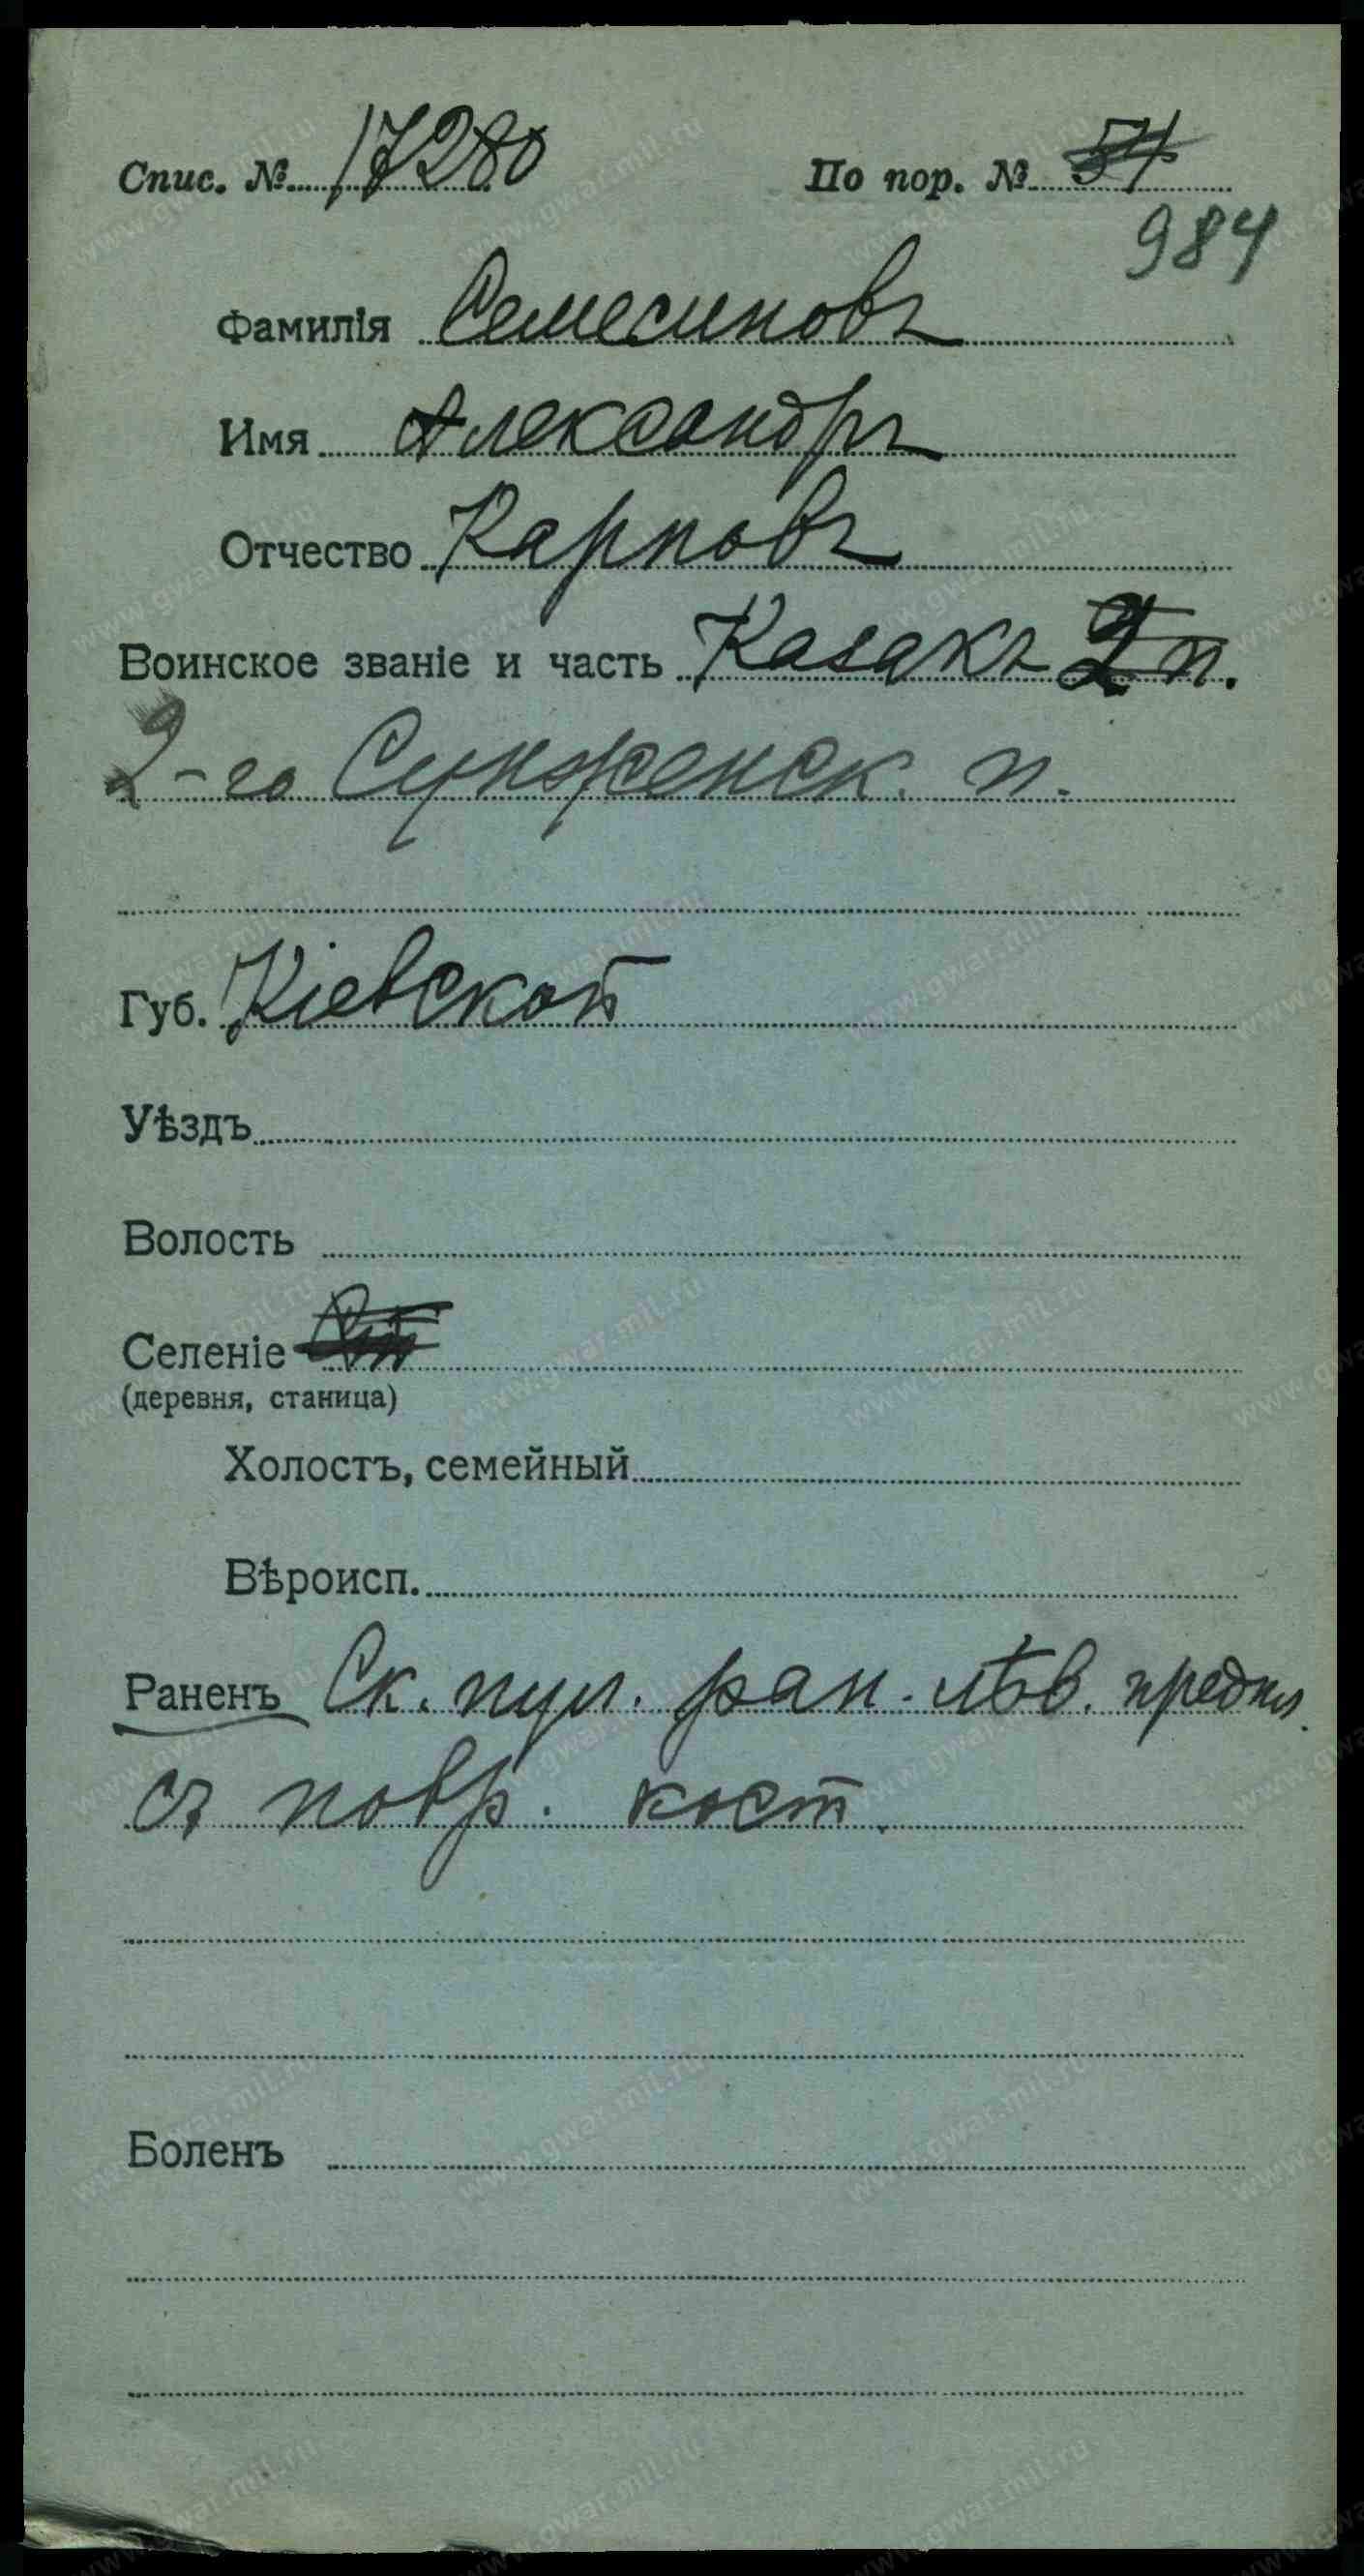 Спис. № 17280 По пор. № 54
984
Фамилія Семесиновъ
Имя Александръ
Отчество Карповъ
Воинское званіе и часть Казакъ 2 п.
2-го Сунженск. п.
Губ. Кіевской
Уѣздъ
Волость
Селеніе
(деревня, станица)
Холостъ, семейный
Вѣроисп.
Раненъ Ск. пул. ран. лѣв. предпл.
съ повр. кост.
Боленъ